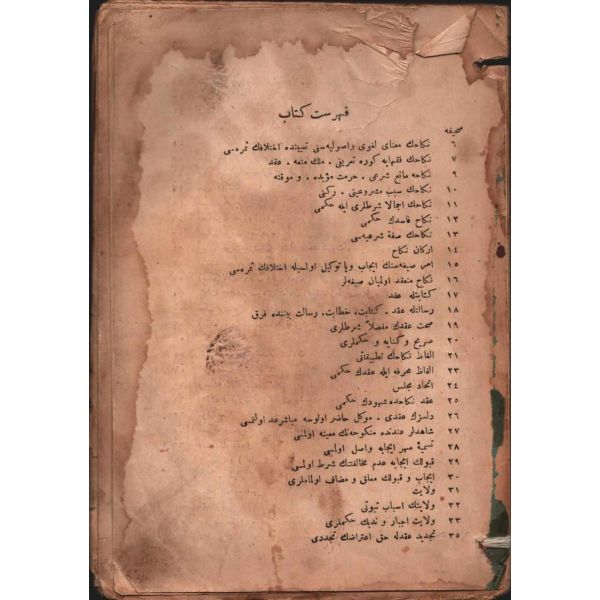 فهرست كتاب
صحيفه
٦ نكاحك معنای لغوی واصوليه‌سنی تعييننده اختلافك ثمره‌سی
٧ نكاحك فقهايه كوره تعريفی . ملك متعه . عقد
٩ نكاحه مانع شرعی . حرمت مؤبده . و موقته
١٠ نكاحك سبب مشروعيتی . ركنی
١١ نكاحك اجمالا شرطلری ايله حكمی
١٢ نكاح فاسدك حكمی
١٣ نكاحك صفة شرعيه‌سی
١٤ اركان نكاح
١٥ امر صيغه‌سنك ايجاب ويا توكيل اولمسيله اختلافك ثمره‌سی
١٦ نكاح منعقد اولميان صيغه‌لر
١٧ كتابتله عقد
١٨ رسالتله عقد . كتابت، خطابت، رسالت بيننده فرق
١٩ صحت عقدك مفصلاً شرطلری
٢٠ صريح وكنايه و حكملری
٢١ الفاظ نكاحك تطبيقاتی
٢٣ الفاظ محرفه ايله عقدك حكمی
٢٤ اتحاد مجلس
٢٥ عقد نكاحده شهودك حكمی
٢٦ دلسزك عقدی . موكل حاضر اولوسه مباشرعد اولنمسی
٢٧ شاهدلر عندنده منكوحه‌نك معينه اولمسی
٢٨ تسمية مهر ايجابه واصل اولمسی
٢٩ قبولك ايجابه عدم مخالفتنك شرط اولمسی
٣٠ ايجاب و قبولك معلق و مضاف اولماملری
٣١ ولايت
٣٢ ولايتك اسباب ثبوتی
٣٣ ولايت اجبار و ندبك حكملری
٣٥ تجديد عقدله حق اعتراضك تجددی